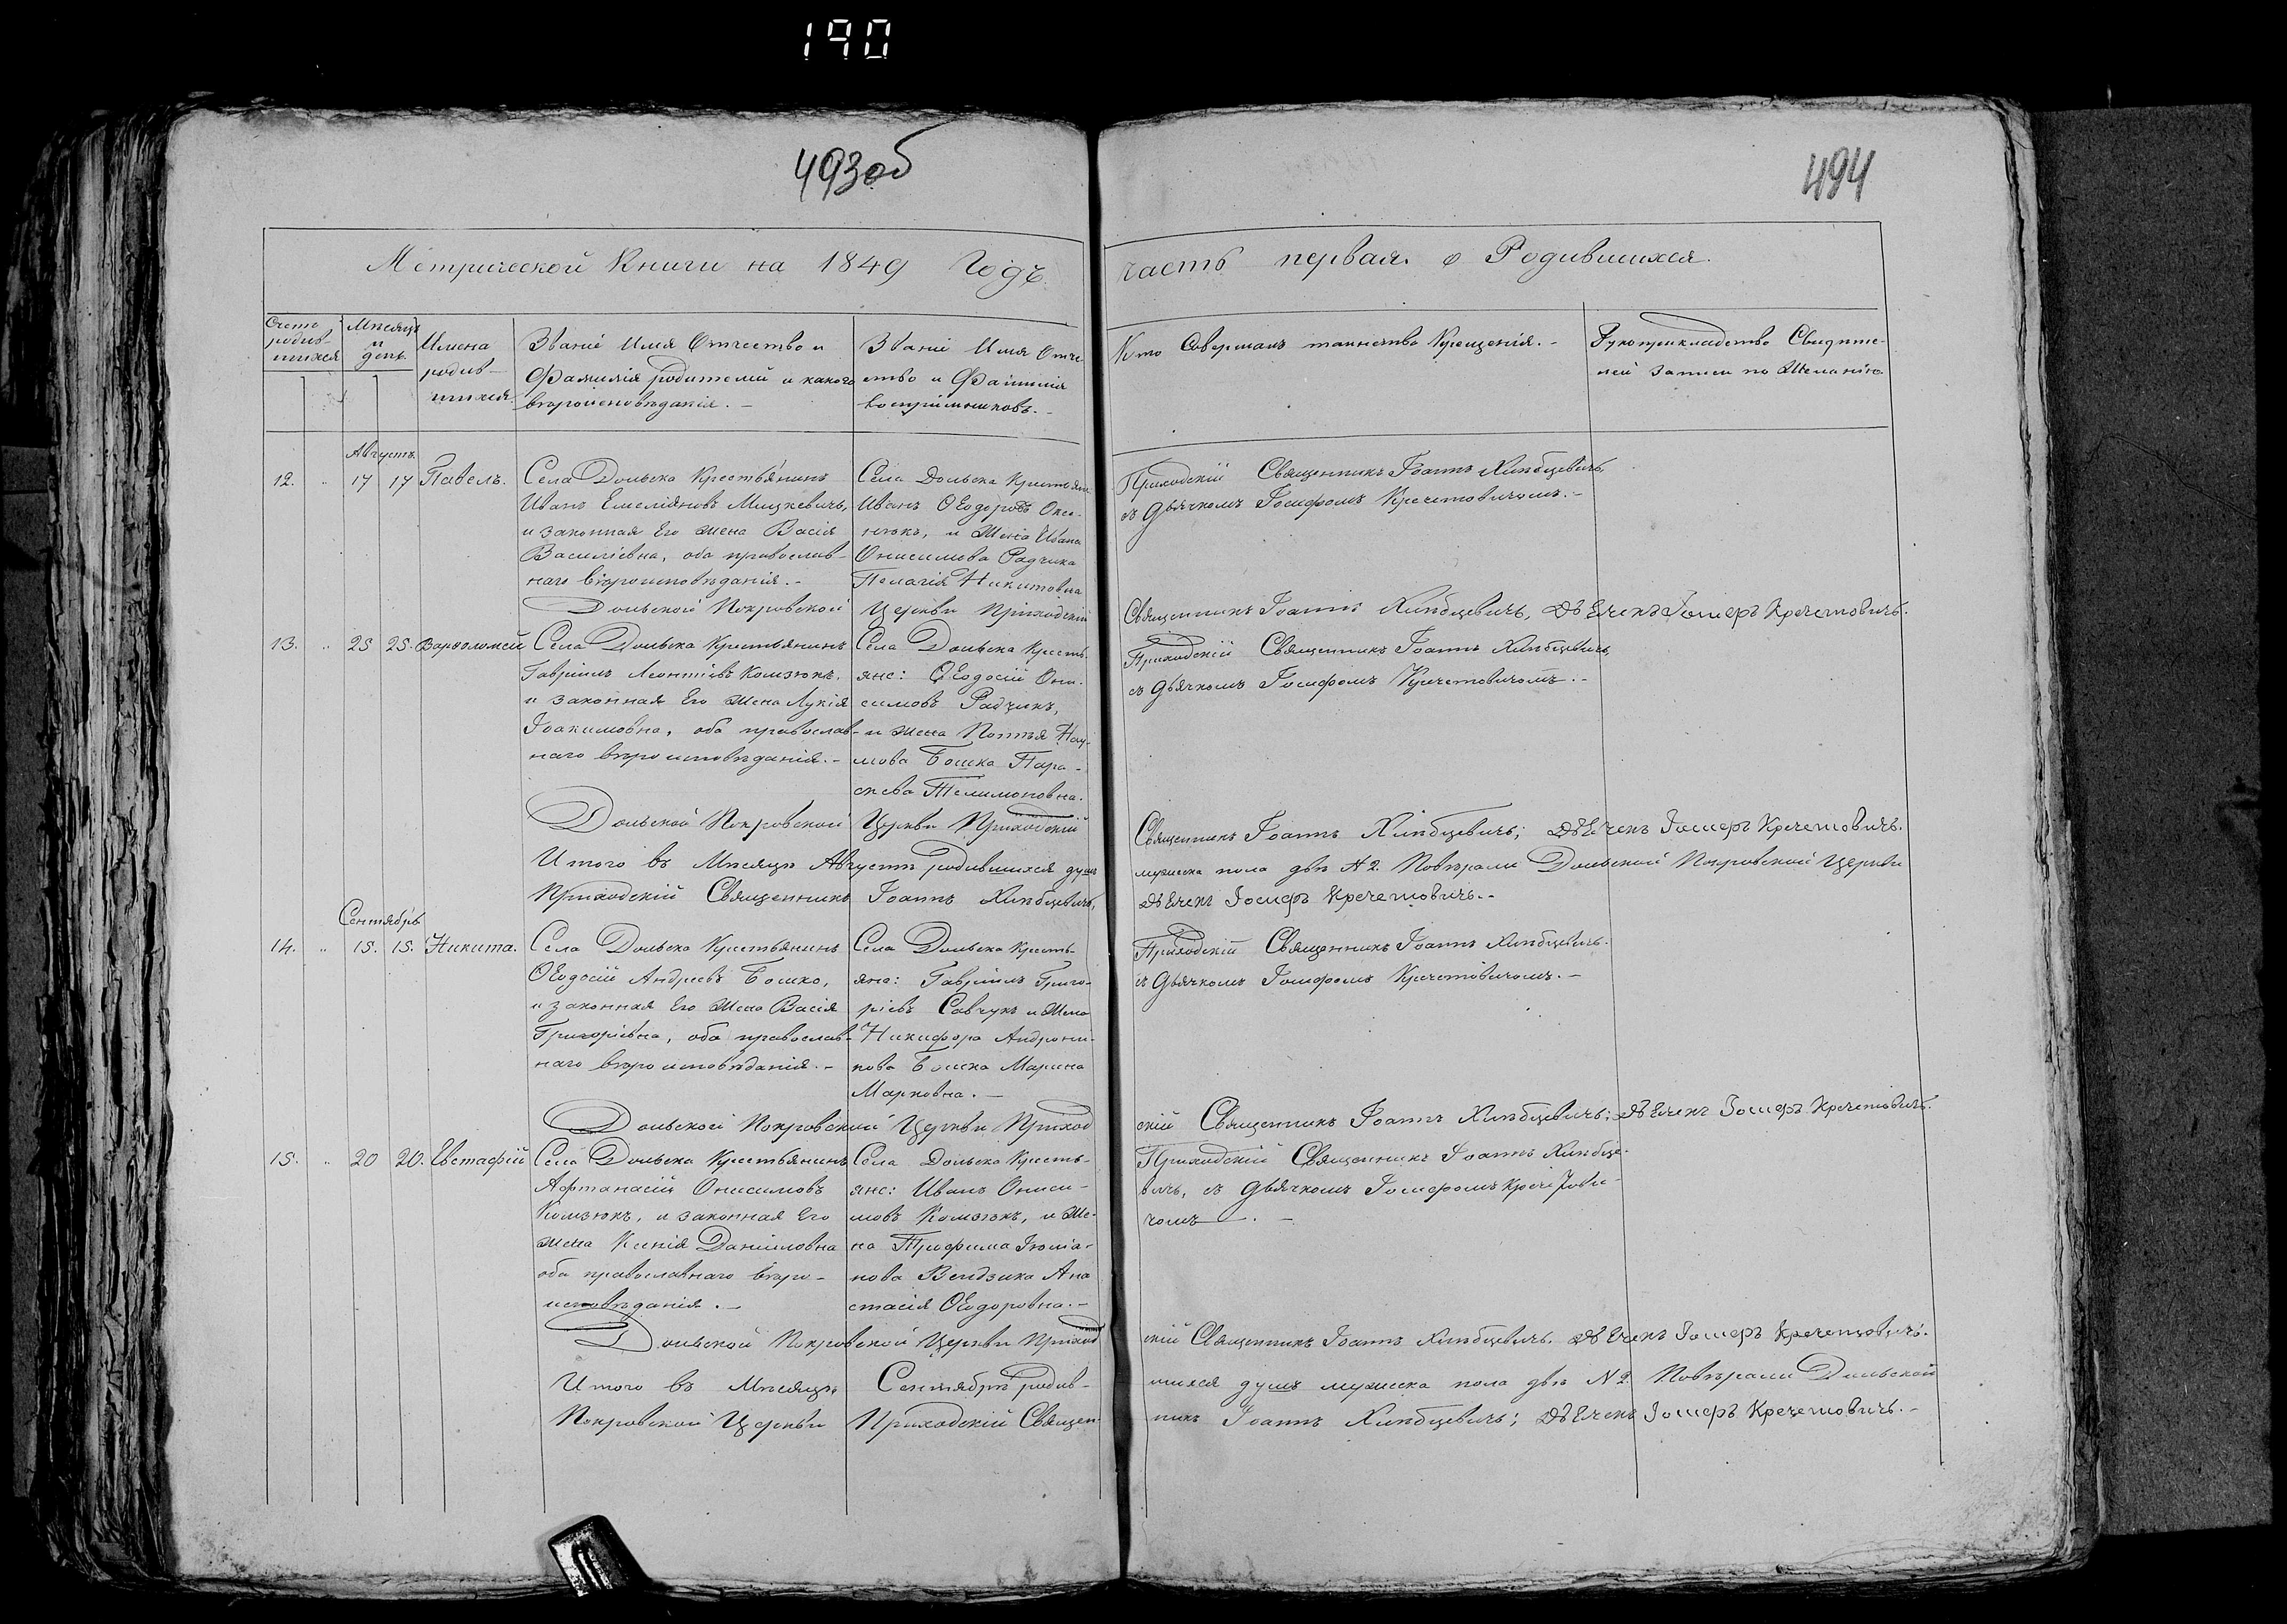 190
493об
494
Метрической Книги на 1849 Годъ
часть первая о Родившихся.
Счетъ родив-шихся
Мѣсяцъ и день.
Имена родив-шихся
Званіе Имя Отчество и
Фамилія родителей и какого
вѣроисповѣданія. –
Званіе Имя Отче-
ство и Фамилія
воспріѣмниковъ. –
Кто Совершалъ таинство Крещенія. –
Рукоприкладство Свидѣте-
лей записи по Желанію.
Августъ
12. " 17 17 Павелъ.
Села Дольска Крестьянинъ
Иванъ Емеліяновъ Мицкевичь,
и законная Его жена Васія
Василіевна, оба православ-
наго вѣроисповѣданія. –
Села Дольска Крестьяне
Иванъ Ѳеодоровъ Оксе-
нюкъ, и Жена Ивана
Онисимова Радчика
Пелагія Никитовна
Приходскій Священникъ Іоаннъ Хлѣбцевичь,
съ Дьячкомъ Іосифомъ Кречетовичомъ. –
Дольской Покровской Церкви Приходскій
Священникъ Іоаннъ Хлѣбцевичь, Дьечекъ Іосифъ Кречетовичь.
13. " 25 25. Варѳоломей
Села Дольска Крестьянинъ
Гавріилъ Леонтіевъ Комзюкъ.
и законная Его Жена Лукія
Іоакимовна, оба православ-
наго вѣроисповѣданія. –
Села Дольска Кресть-
яне: Ѳеодосій Они-
симовъ Радзикъ,
и жена Потапа Нау-
мова Бошка Пара-
скева Телимоновна.
Приходскій Священникъ Іоаннъ Хлѣбцевичь,
съ Дьячкомъ Іосифомъ Кречетовичомъ. –
Дольской Покровской Церкви Приходскій
Священникъ Іоаннъ Хлѣбцевичь; Дьечекъ Іосифъ Кречетовичь.
Итого въ Мѣсяцѣ Августѣ родившихся душъ
мужеска пола двѣ N 2. Повѣряли Дольской Покровской Церкви
Приходскій Священникъ Іоаннъ Хлѣбцевичь,
Дьечекъ Іосифъ Кречетовичь. –
Сентябрь
14. " 15. 15. Никита.
Села Дольска Крестьянинъ
Ѳеодосій Андреевъ Бошко,
и законная Его Жена Васія
Григоріевна, оба православ-
наго вѣроисповѣданія. –
Села Дольска Кресть-
яне: Гавріилъ Григо-
ріевъ Савчукъ и Жена
Никифора Андрони-
кова Бошка Марина
Марковна. –
Приходскій Священникъ Іоаннъ Хлѣбцевичь.
съ Дьячкомъ Іосифомъ Кречетовичомъ. –
Дольской Покровской Церкви Приход
скій Священникъ Іоаннъ Хлѣбцевичь; Дьечекъ Іосифъ Кречетовичь.
15. " 20 20. Евстафій
Села Дольска Крестьянинъ
Афтанасій Онисимовъ
Комзюкъ, и законная Его
жена Ксенія Даниловна
оба православнаго вѣро-
исповѣданія. –
Села Дольска Кресть-
яне: Иванъ Ониси-
мовъ Комзюкъ, и Же-
на Трофима Іюліа-
нова Вендзика Ана
стасія Ѳеодоровна. –
Приходскій Священникъ Іоаннъ Хлѣбце-
вичь, съ Дьячкомъ Іосифомъ Кречетови-
чомъ. –
Дольской Покровской Церкви Приход
скій Священникъ Іоаннъ Хлѣбцевичь. Дьечекъ Іосифъ Кречетовичь.
Итого въ Мѣсяцѣ Сентябрѣ родив-
шихся душъ мужеска пола двѣ N 2. Повѣряли Дольской
Покровской Церкви Приходскій Священ-
никъ Іоаннъ Хлѣбцевичь; Дьечекъ Іосифъ Кречетовичь. –